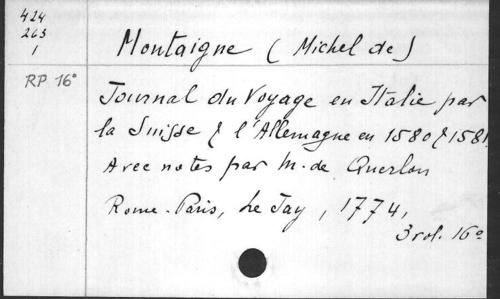 424
263
1
Montaigne (Michel de)
RP 16°
Journal du Voyage en Italie par
la Suisse & l'Allemagne en 1580 & 1581
Avec notes par M. de Querlon
Rome-Paris, Le Jay, 1774,
3 vol. 16°